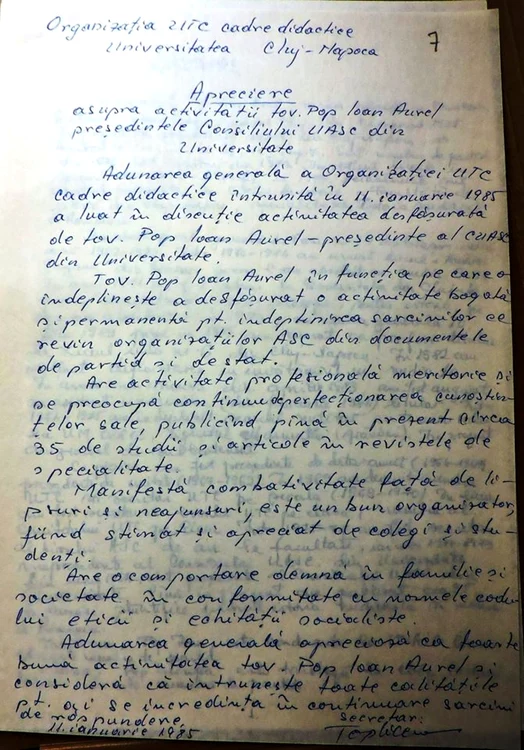 Organizația UTC cadre didactice
Universitatea Cluj-Napoca
7
Apreciere
asupra activității tov. Pop Ioan Aurel
președintele Consiliului UASC din
Universitate
Adunarea generală a Organizației UTC
cadre didactice întrunită în 11. ianuarie 1985
a luat în discuție activitatea desfășurată
de tov. Pop Ioan Aurel - președinte al CUASC
din Universitate.
Tov. Pop Ioan Aurel în funcția pe care o
îndeplinește a desfășurat o activitate bogată
și permanentă pt. îndeplinirea sarcinilor ce
revin organizațiilor ASC din documentele
de partid și de stat.
Are activitate profesională meritorie și
se preocupă continuu de perfecționarea cunoștin-
țelor sale, publicînd pînă în prezent circa
35 de studii și articole în revistele de
specialitate.
Manifestă combativitate față de li-
psuri și neajunsuri, este un bun organizator,
fiind stimat și apreciat de colegi și stu-
denți.
Are o comportare demnă în familie și
societate în conformitate cu normele codu-
lui eticii și echității socialiste.
Adunarea generală apreciază ca foarte
bună activitatea tov. Pop Ioan Aurel și
consideră că întrunește toate calitățile
pt. a i se încredința în continuare sarcini
de răspundere.
secretar:
11. ianuarie 1985